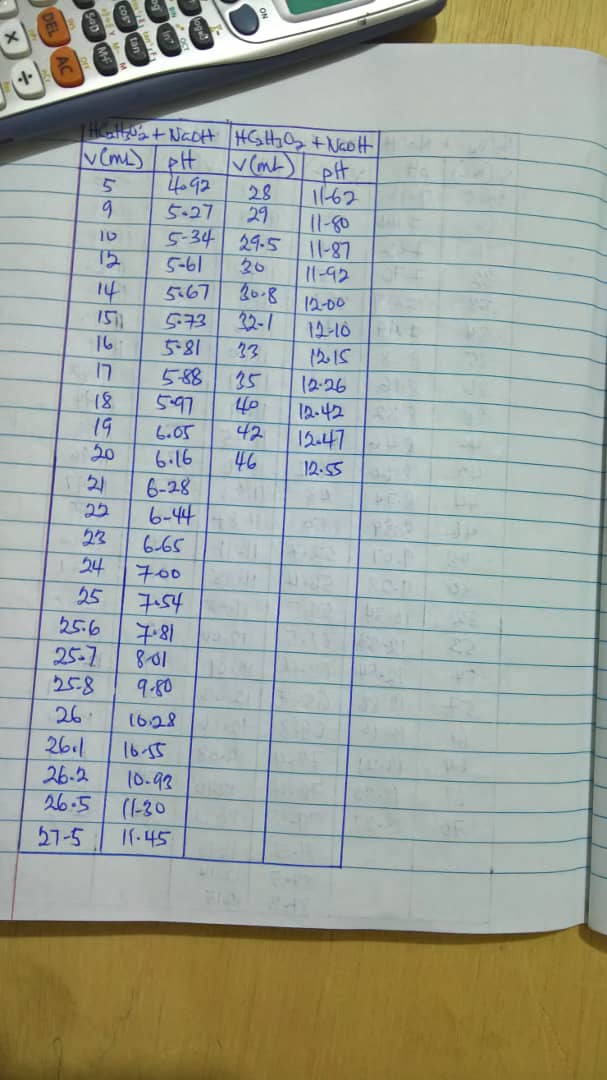 ON
DEL
AC
HC2H3O2 + NaOH HC2H3O2 + NaOH
V(mL) pH V(mL) pH
5 4.92 28 11-62
9 5.27 29 11-80
10 5-34 29.5 11-87
12 5.61 30 11-92
14 5.67 30.8 12-00
15 5.73 32.1 12-10
16 5.81 33 12.15
17 5-88 35 12.26
18 5.97 40 12.42
19 6.05 42 12.47
20 6.16 46 12.55
21 6-28
22 6-44
23 6.65
24 7.00
25 7.54
25.6 7.81
25.7 8.01
25.8 9.80
26 10.28
26.1 10.55
26.2 10.93
26.5 11-30
27-5 11.45